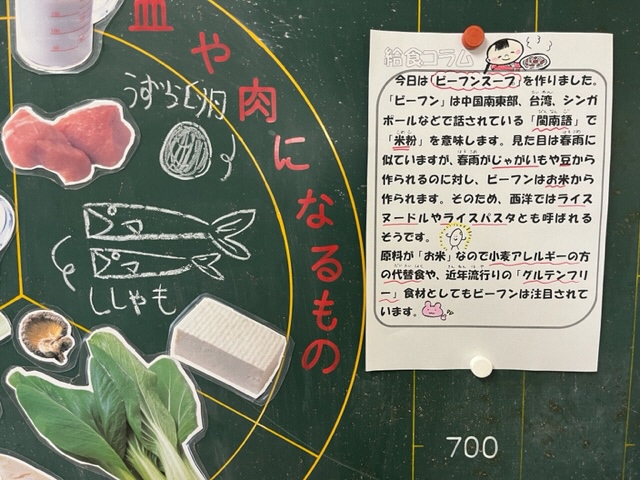 血
や
肉
に
なるもの
うずら卵
ししゃも
給食コラム
今日は ビーフンスープ を作りました。
「ビーフン」は中国南東部、台湾、シンガ
ポールなどで話されている「閩南語」で
「米粉」を意味します。見た目は春雨に
似ていますが、春雨がじゃがいもや豆から
作られるのに対し、ビーフンはお米から
作られます。そのため、西洋ではライス
ヌードルやライスパスタとも呼ばれる
そうです。
原料が「お米」なので小麦アレルギーの方
の代替食や、近年流行りの「グルテンフリ
ー」食材としてもビーフンは注目されて
います。
700